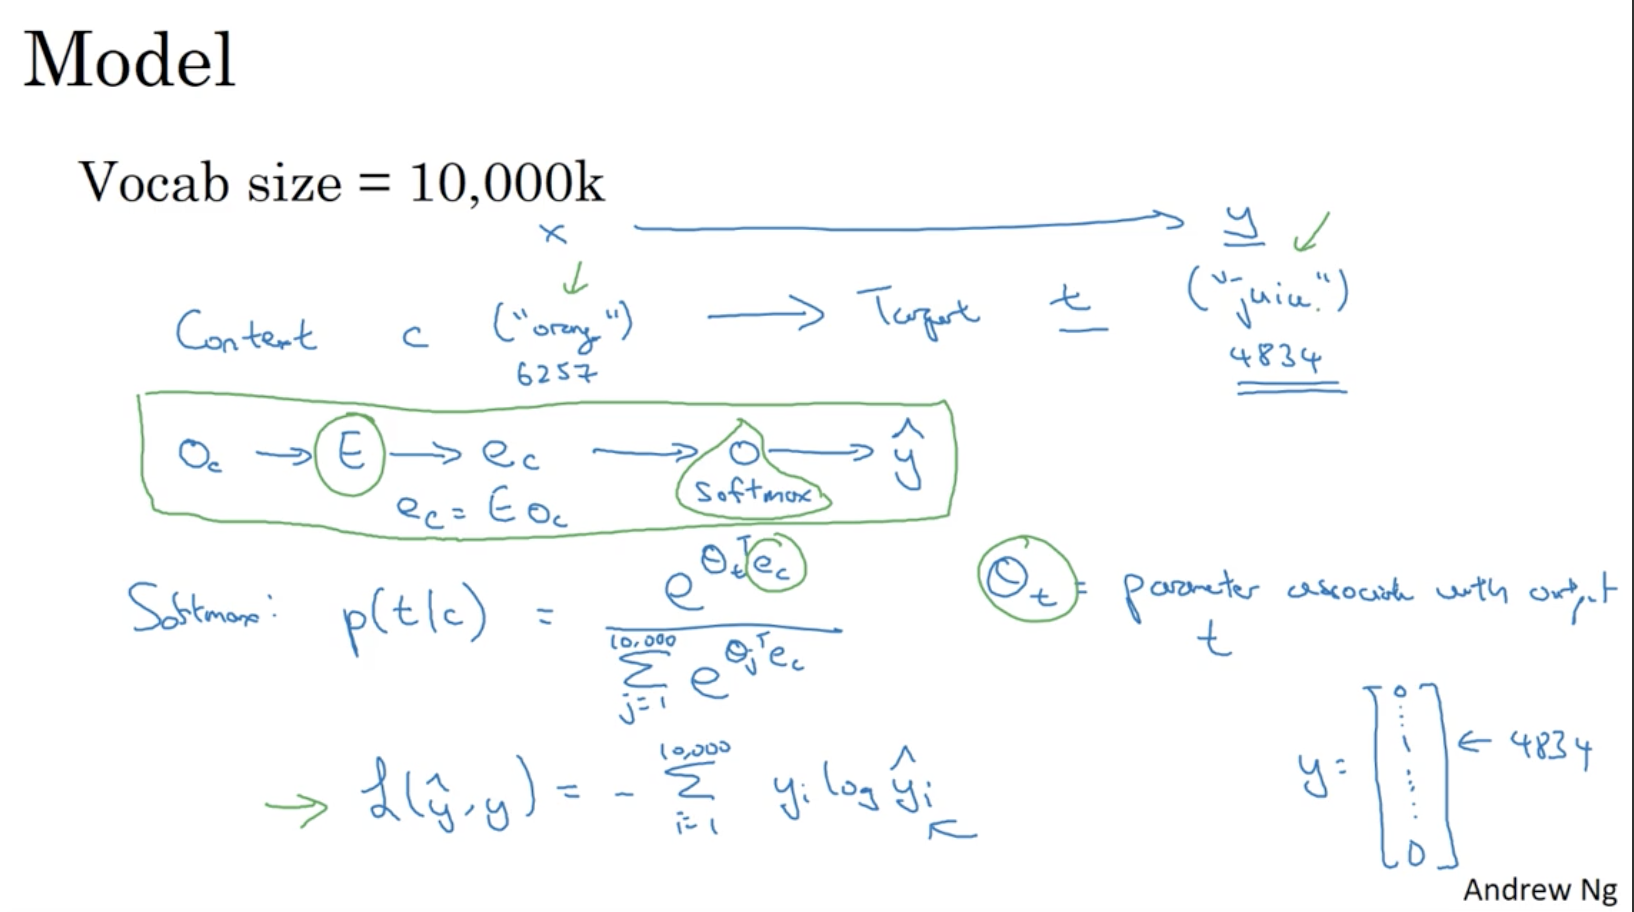 Model
Vocab size = 10,000k
x → y
Context c ("orange") → Target t ("juice")
6257 4834
O_c → E → e_c → o → ŷ
Softmax
e_c = E O_c
Softmax: p(t|c) = e^{θ_t^T e_c} / Σ_{j=1}^{10,000} e^{θ_j^T e_c}
θ_t = parameter associated with output t
L(ŷ, y) = - Σ_{i=1}^{10,000} y_i log ŷ_i
y = [0 ⋮ 1 ⋮ 0] ← 4834
Andrew Ng